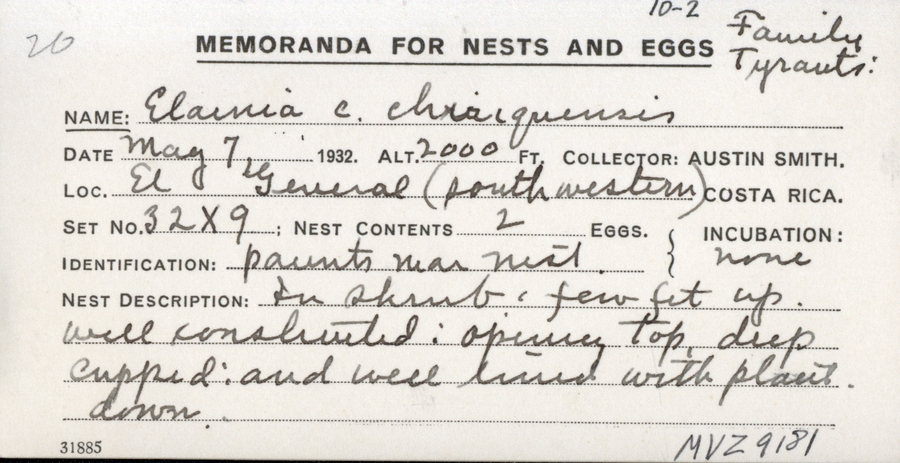 10-2
20
MEMORANDA FOR NESTS AND EGGS
Family
Tyrants:
NAME: Elainia c. chiriquensis
DATE May 7, 1932. ALT. 2000 FT. COLLECTOR: AUSTIN SMITH.
LOC. El General (southwestern) COSTA RICA.
SET NO. 32X9 ; NEST CONTENTS 2 EGGS. { INCUBATION:
IDENTIFICATION: parents near nest. none
NEST DESCRIPTION: In shrub: few fet up.
well constructed: opening top, deep
cupped: and well lined with plant
down.
31885
MVZ 9181